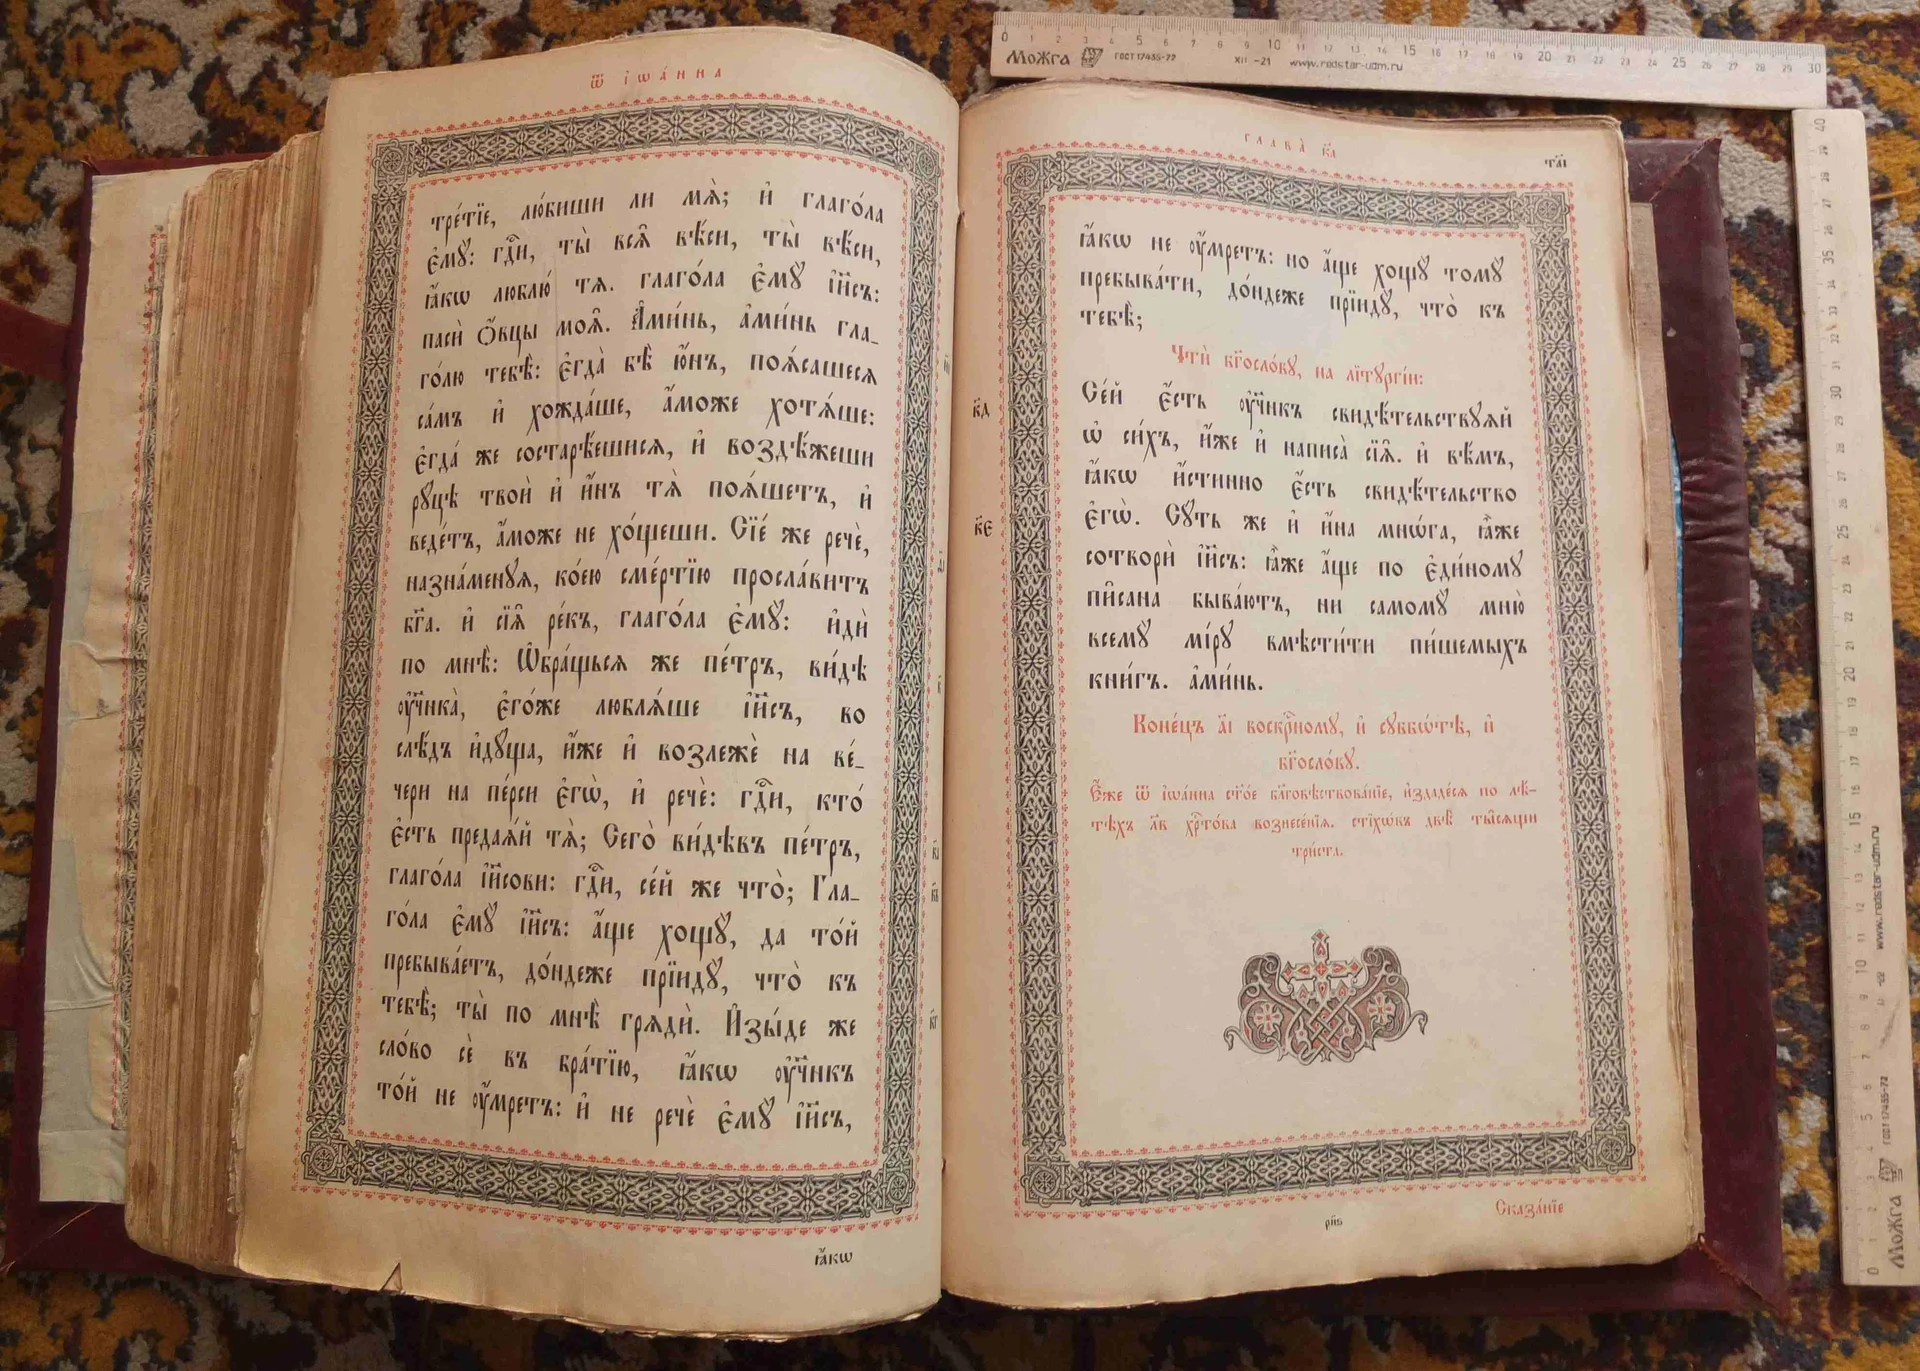 ѿ і҆ѡа́нна
тре́тїе, лю́биши ли мѧ̀; и҆ глаго́ла
є҆мꙋ̀: гдⷭ҇и, ты̀ всѧ̑ вѣ́си, ты̀ вѣ́си,
ꙗ҆́кѡ люблю́ тѧ. глаго́ла є҆мꙋ̀ і҆и҃съ:
пасѝ ѻ҆́вцы моѧ̑. А҆ми́нь, а҆ми́нь гла_
го́лю тебѣ̀: є҆гда̀ бѣ̀ ю҆́нъ, поѧ́сашесѧ
са́мъ и҆ хожда́ше, а҆́може хотѧ́ше:
є҆гда́ же состарѣ́ешисѧ, и҆ воздѣ́жеши
рꙋцѣ̀ твоѝ и҆ и҆́нъ тѧ̀ поѧ́шетъ, и҆
веде́тъ, а҆́може не хо́щеши. Сїе́ же речѐ,
назна́менꙋѧ, ко́ею сме́ртїю просла́витъ
бг҃а. и҆ сїѧ̑ ре́къ, глаго́ла є҆мꙋ̀: и҆дѝ
по мнѣ̀: Ѡ҆бра́щьсѧ же пе́тръ, ви́дѣ
ᲂу҆чн҃ика̀, є҆го́же люблѧ́ше і҆и҃съ, во
слѣ́дъ и҆дꙋ́ща, и҆́же и҆ возлежѐ на ве́_
чери на пе́рси є҆гѡ̀, и҆ речѐ: гдⷭ҇и, кто́
є҆́сть предаѧ́й тѧ̀; Сего̀ ви́дѣвъ пе́тръ,
глаго́ла і҆и҃сови: гдⷭ҇и, се́й же что̀; Гла_
го́ла є҆мꙋ̀ і҆и҃съ: а҆́ще хощꙋ̀, да то́й
пребыва́етъ, до́ндеже прїидꙋ̀, что̀ къ
тебѣ̀; ты̀ по мнѣ̀ грѧдѝ. И҆зы́де же
сло́во сѐ въ бра́тїю, ꙗ҆́кѡ ᲂу҆чн҃икъ
то́й не ᲂу҆́мретъ: и҆ не речѐ є҆мꙋ̀ і҆и҃съ,
ꙗ҆́кѡ
глава̀ к҃а
та҃і
ꙗ҆́кѡ не ᲂу҆́мретъ: но а҆́ще хощꙋ̀ томꙋ̀
пребыва́ти, до́ндеже прїидꙋ̀, что̀ къ
тебѣ̀;
Чтѝ бг҃осло́вꙋ, на лїтꙋргі́и:
к҃д
Се́й є҆́сть ᲂу҆чн҃икъ свидѣ́тельствꙋѧй
ѡ҆ си́хъ, и҆́же и҆ написа̀ сїѧ̑. и҆ вѣ́мъ,
ꙗ҆́кѡ и҆́стинно є҆́сть свидѣ́тельство
к҃є
є҆гѡ̀. Сꙋ́ть же и҆ и҆́на мнѡ́га, ꙗ҆̀же
сотворѝ і҆и҃съ: ꙗ҆̀же а҆́ще по є҆ди́номꙋ
пи̑сана быва́ютъ, ни самомꙋ̀ мню̀
всемꙋ̀ мі́рꙋ вмѣсти́ти пи́шемыхъ
кни́гъ. а҆ми́нь.
Коне́цъ а҃і воскрⷭ҇номꙋ, и҆ сꙋббѡ́тѣ, и҆
бг҃осло́вꙋ.
Є҆́же ѿ і҆ѡа́нна ст҃о́е бл҃говѣствова́нїе, и҆здаде́сѧ по лѣ́-
тѣхъ л҃в хрⷭ҇то́ва вознесе́нїѧ. стїхѡ́въ двѣ̀ ты́сѧщи
три́ста.
Сказа́нїе
0 1 2 3 4 5 6 7 8 9 10 11 12 13 14 15 16 17 18 19 20 21 22 23 24 25 26 27 28 29 30
Можга ГОСТ 17435-72 XII -21 www.redstar-udm.ru
www.redstar-udm.ru
ГОСТ 17435-72
Можга